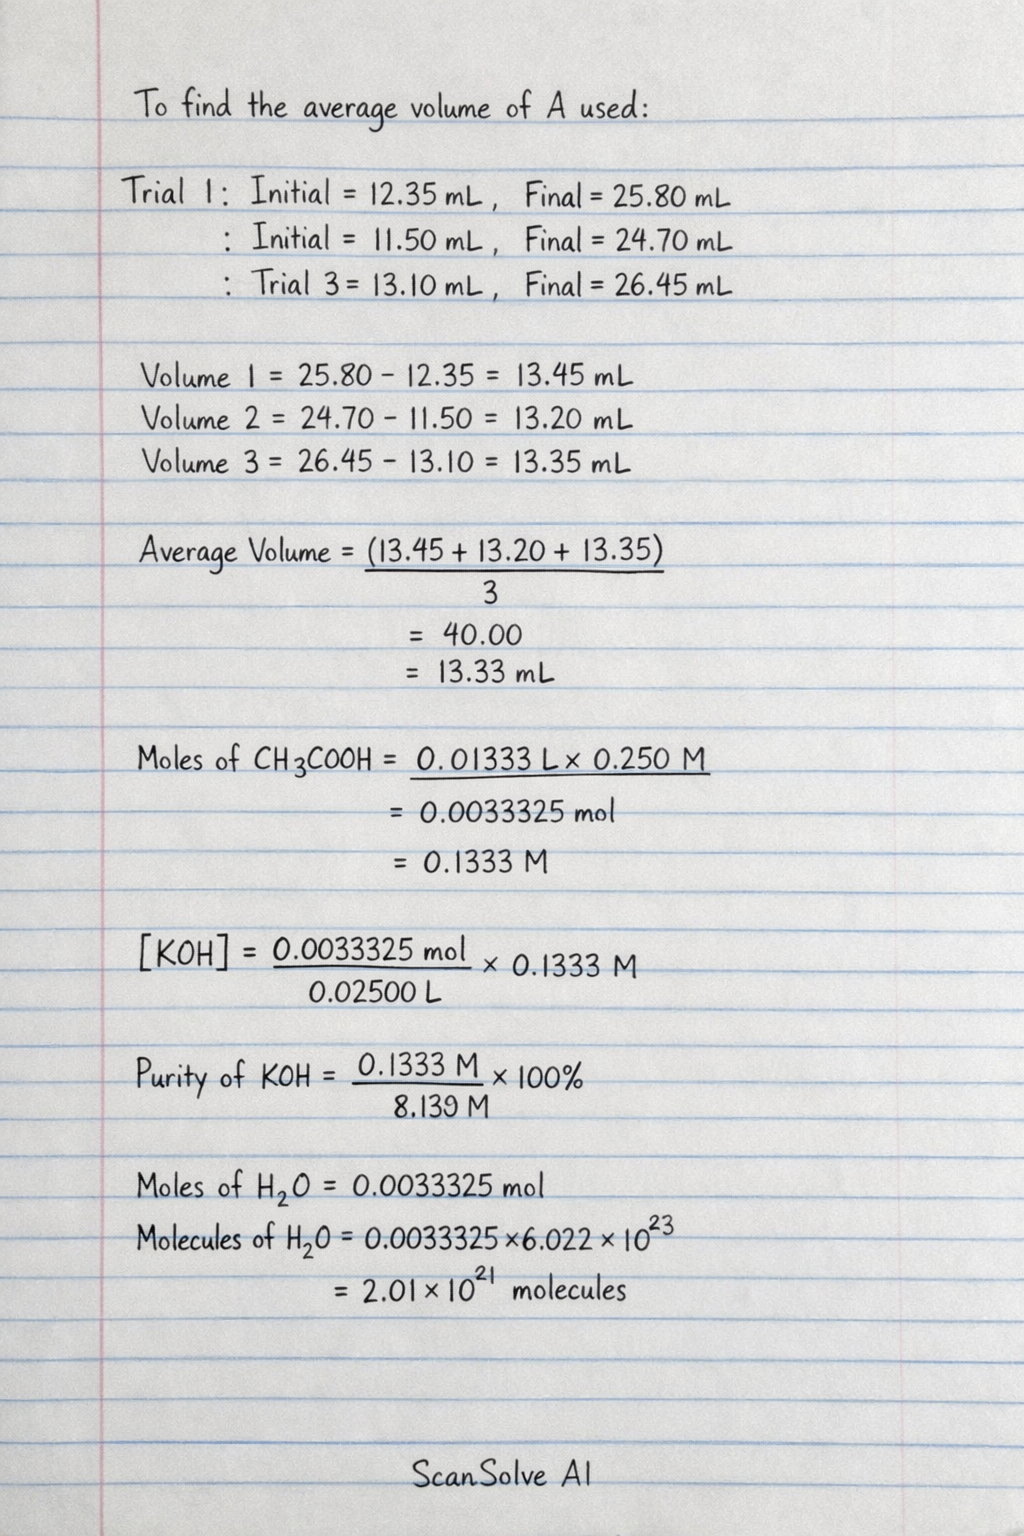 To find the average volume of A used:
Trial 1: Initial = 12.35 mL, Final = 25.80 mL
: Initial = 11.50 mL, Final = 24.70 mL
: Trial 3 = 13.10 mL, Final = 26.45 mL
Volume 1 = 25.80 - 12.35 = 13.45 mL
Volume 2 = 24.70 - 11.50 = 13.20 mL
Volume 3 = 26.45 - 13.10 = 13.35 mL
Average Volume = (13.45 + 13.20 + 13.35)
3
= 40.00
= 13.33 mL
Moles of CH₃COOH = 0.01333 L × 0.250 M
= 0.0033325 mol
= 0.1333 M
[KOH] = 0.0033325 mol × 0.1333 M
0.02500 L
Purity of KOH = 0.1333 M × 100%
8.139 M
Moles of H₂O = 0.0033325 mol
Molecules of H₂O = 0.0033325 × 6.022 × 10²³
= 2.01 × 10²¹ molecules
ScanSolve AI